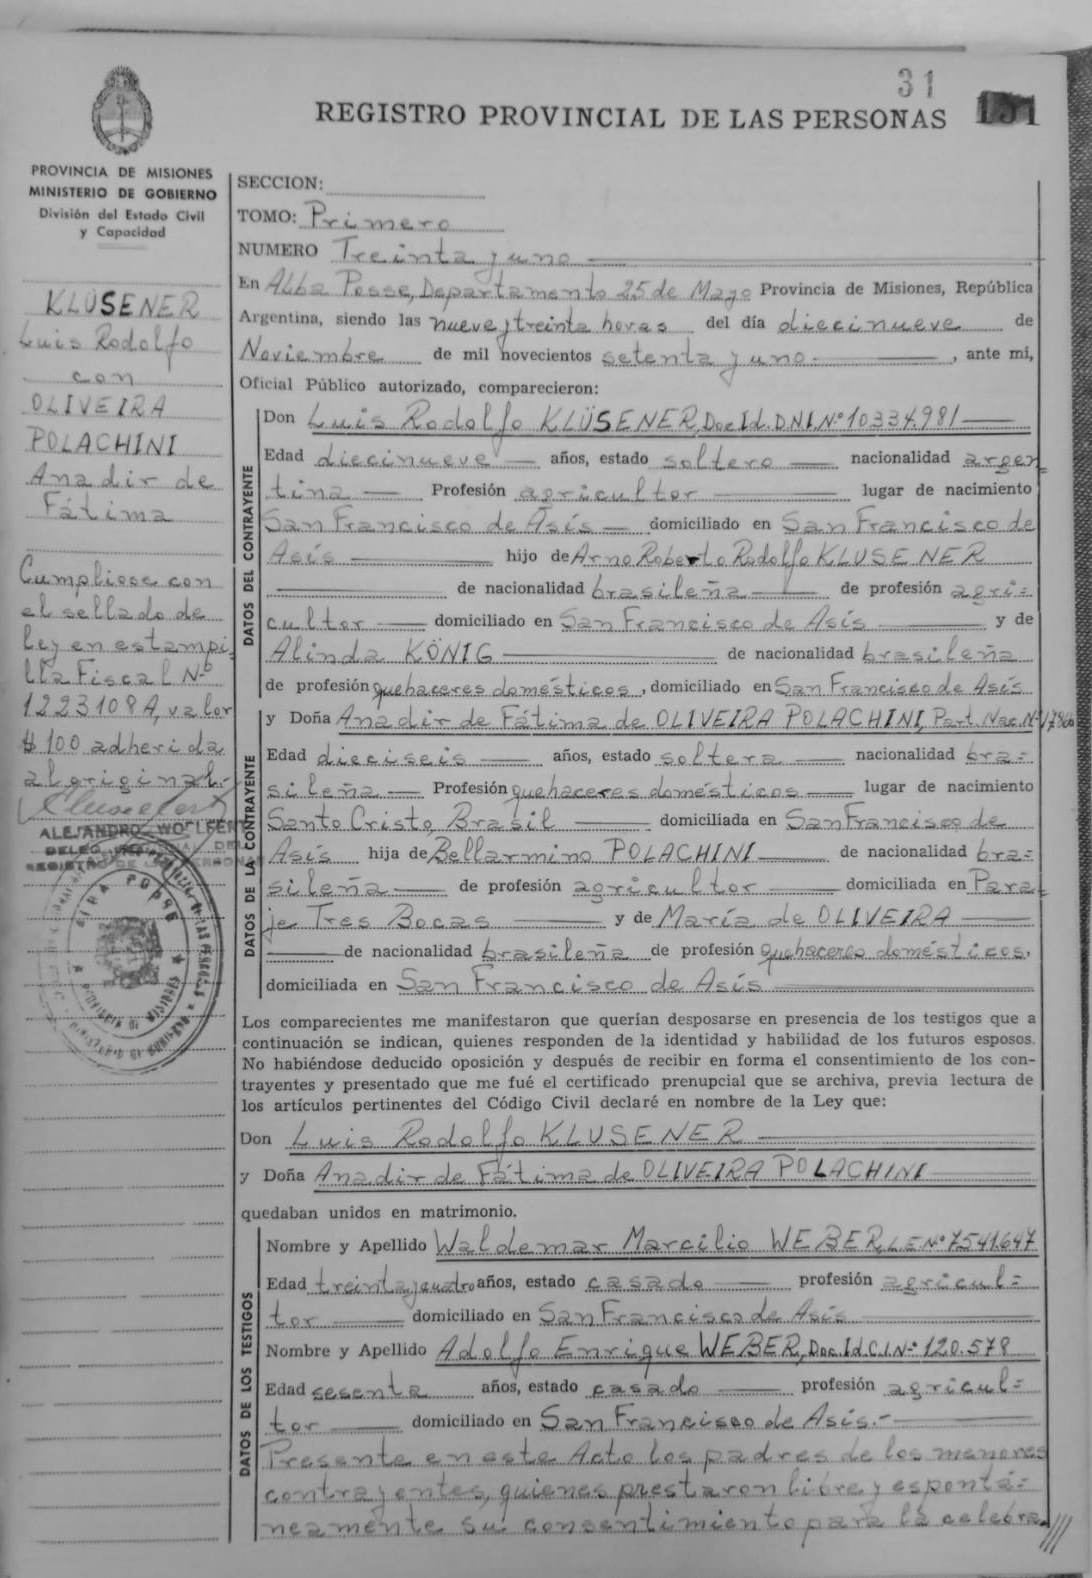 31
REGISTRO PROVINCIAL DE LAS PERSONAS
PROVINCIA DE MISIONES
MINISTERIO DE GOBIERNO
División del Estado Civil
y Capacidad
KLÜSENER
Luis Rodolfo
con
OLIVEIRA
POLACHINI
Anadir de
Fátima
Cumpliose con
el sellado de
ley en estampi=
lla Fiscal Nº
1223108A, valor
$ 100 adherida
al original.-
ALEJANDRO
ALBA POSSE
PROVINCIA DE MISIONES
SECCION:
TOMO: Primero
NUMERO Treinta y uno
En Alba Posse, Departamento 25 de Mayo Provincia de Misiones, República
Argentina, siendo las nueve y treinta horas del día diecinueve de
Noviembre de mil novecientos setenta y uno.- , ante mí,
Oficial Público autorizado, comparecieron:
DATOS DEL CONTRAYENTE
Don Luis Rodolfo KLÜSENER, Doc.Id. D.N.I. Nº 10.334.981
Edad diecinueve años, estado soltero nacionalidad argen=
tina Profesión agricultor lugar de nacimiento
San Francisco de Asís domiciliado en San Francisco de
Asís hijo de Arno Roberto Rodolfo KLUSENER
de nacionalidad brasileña de profesión agri=
cultor domiciliado en San Francisco de Asís y de
Alinda KÖNIG de nacionalidad brasileña
de profesión quehaceres domésticos, domiciliado en San Francisco de Asís
DATOS DE LA CONTRAYENTE
y Doña Anadir de Fátima de OLIVEIRA POLACHINI, Part. Nac. Nº
Edad dieciseis años, estado soltera nacionalidad bra=
sileña Profesión quehaceres domésticos lugar de nacimiento
Santo Cristo, Brasil domiciliada en San Francisco de
Asís hija de Bellarmino POLACHINI de nacionalidad bra=
sileña de profesión agricultor domiciliada en Para=
je Tres Bocas y de María de OLIVEIRA
de nacionalidad brasileña de profesión quehaceres domésticos,
domiciliada en San Francisco de Asís
Los comparecientes me manifestaron que querían desposarse en presencia de los testigos que a
continuación se indican, quienes responden de la identidad y habilidad de los futuros esposos.
No habiéndose deducido oposición y después de recibir en forma el consentimiento de los con-
trayentes y presentado que me fué el certificado prenupcial que se archiva, previa lectura de
los artículos pertinentes del Código Civil declaré en nombre de la Ley que:
Don Luis Rodolfo KLUSENER
y Doña Anadir de Fátima de OLIVEIRA POLACHINI
quedaban unidos en matrimonio.
DATOS DE LOS TESTIGOS
Nombre y Apellido Waldemar Marcilio WEBER, L.E Nº 7.541.647
Edad treinta y cuatro años, estado casado profesión agricul=
tor domiciliado en San Francisco de Asís
Nombre y Apellido Adolfo Enrique WEBER, Doc. Id. C.I. Nº 120.578
Edad sesenta años, estado casado profesión agricul=
tor domiciliado en San Francisco de Asís.-
Presente en este Acto los padres de los menores
contrayentes, quienes prestaron libre y espontá=
neamente su consentimiento para la celebra